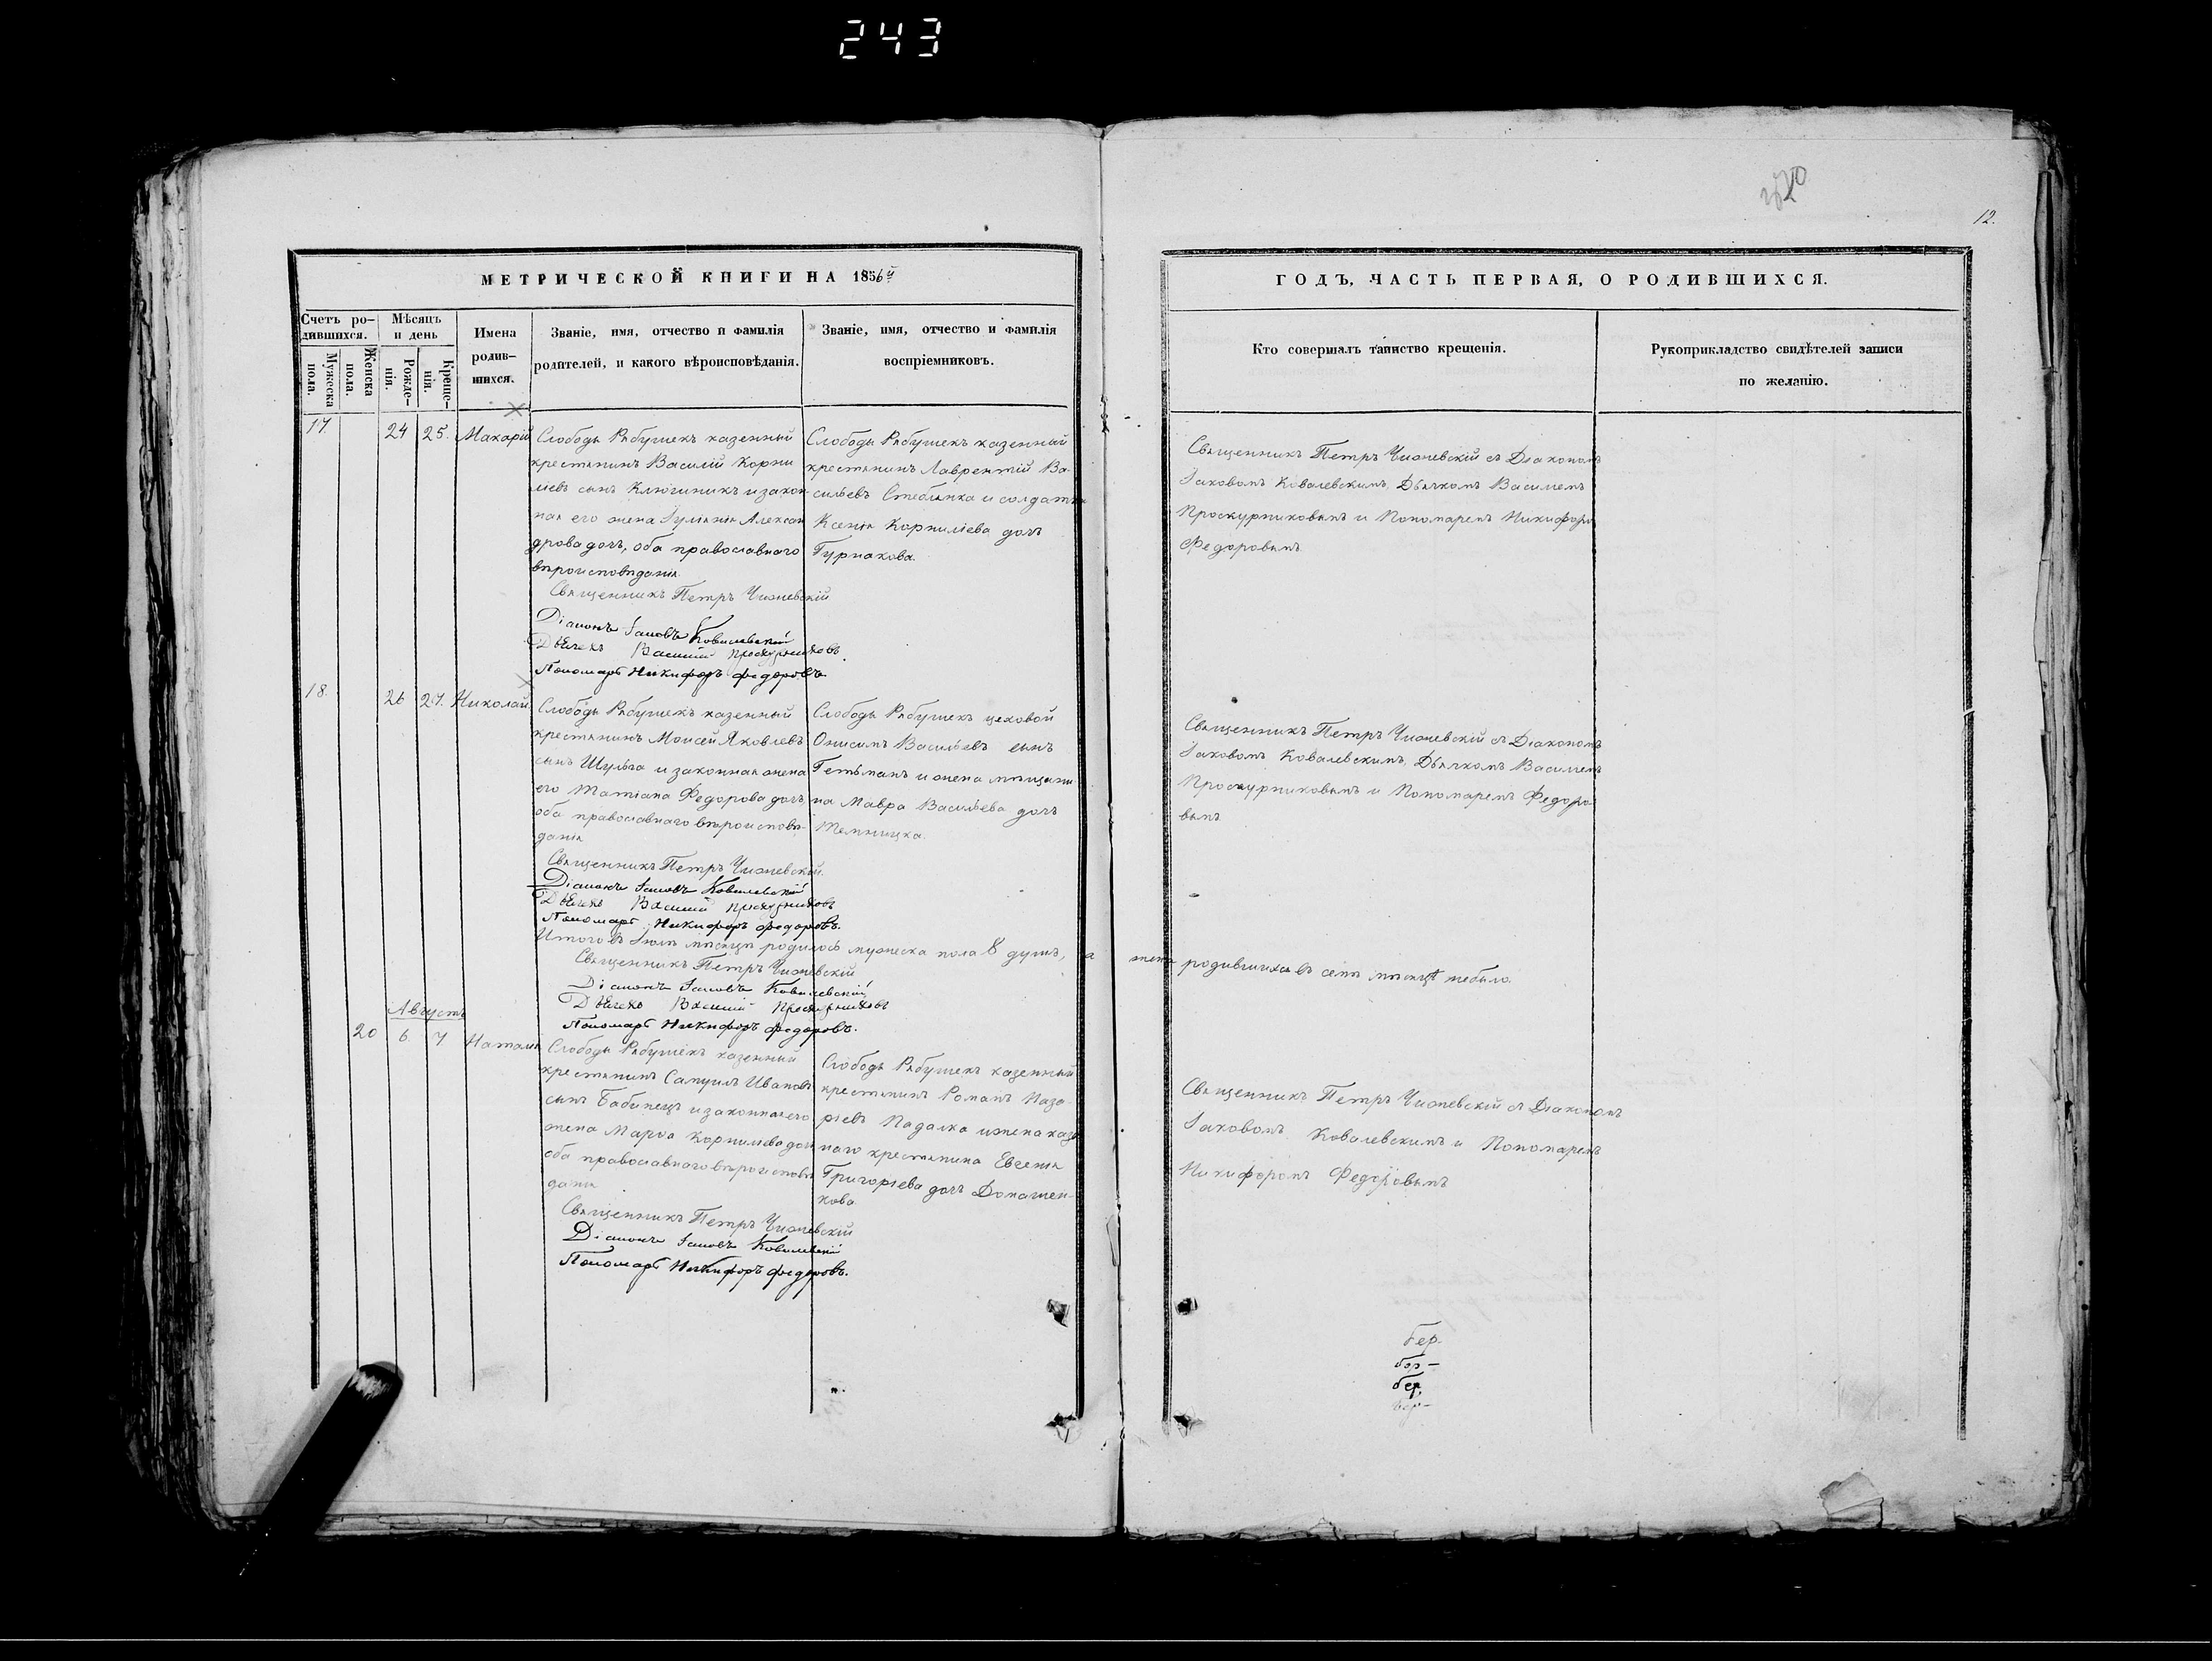 243
320
12.
МЕТРИЧЕСКОЙ КНИГИ НА 1856й
ГОДЪ, ЧАСТЬ ПЕРВАЯ, О РОДИВШИХСЯ.
Счетъ ро-
дившихся.
Мужеска
пола.
Женска
пола.
Мѣсяцъ
и день
Рожде-
нія.
Креще-
нія.
Имена
родив-
шихся.
Званіе, имя, отчество и фамилія
родителей, и какого вѣроисповѣданія.
Званіе, имя, отчество и фамилія
воспріемниковъ.
Кто совершалъ таинство крещенія.
Рукоприкладство свидѣтелей записи
по желанію.
17. 24 25. Макарій
Слободы Рябушекъ казенный
крестьянинъ Василій Корни
ліевъ сынъ Ключникъ и закон
ная его жена Іуліанія Алексан
дрова дочь, оба православнаго
вѣроисповѣданія.
Священникъ Петръ Чижевскій
Діаконъ Іаковъ Ковалевскій
Дьячекъ Василій Проскурниковъ.
Пономарь Никифоръ Федоровъ.
Слободы Рябушекъ казенный
крестьянинъ Лаврентій Ва-
сильевъ Стеблянка и солдатка
Ксенія Корниліева дочь
Гурнакова.
Священникъ Петръ Чижевскій съ Діакономъ
Іаковомъ Ковалевскимъ, Дьячкомъ Василіемъ
Проскурниковымъ и Пономаремъ Никифоро
Федоровымъ
18. 26 27. Николай.
Слободы Рябушекъ казенный
крестьянинъ Моисей Яковлевъ
сынъ Шульга и законная жена
его Татіана Федорова дочь,
оба православнаго вѣроисповѣ-
данія
Священникъ Петръ Чижевскій.
Діаконъ Іаковъ Ковалевскій
Дьячекъ Василій Проскурниковъ
Пономарь Никифоръ Федоровъ.
Слободы Рябушекъ цеховой
Онисимъ Васильевъ сынъ
Гетьманъ и жена мѣщани
на Мавра Васильева дочь
Темницка.
Священникъ Петръ Чижевскій съ Діакономъ
Іаковомъ Ковалевскимъ, Дьячкомъ Василіемъ
Проскурниковымъ и Пономаремъ Федоро
вымъ
Итого въ Іюлѣ мѣсяцѣ родилось мужеска пола 8 душъ, а женск родившихся въ семъ мѣсяцѣ небыло.
Священникъ Петръ Чижевскій
Діаконъ Іаковъ Ковалевскій
Дьячекъ Василій Проскурниковъ
Пономарь Никифоръ Федоровъ.
Августъ
20 6. 7 Наталія
Слободы Рябушекъ казенный
крестьянинъ Самуилъ Ивановъ
сынъ Бабинецъ и законная его
жена Марѳа Корниліева дочь
оба православнаго вѣроисповѣ
данія
Священникъ Петръ Чижевскій
Діаконъ Іаковъ Ковалевскій
Пономарь Никифоръ Федоровъ.
Слободы Рябушекъ казенный
крестьянинъ Романъ Наза-
ріевъ Падалка и жена казе
наго крестьянина Евгенія
Григоріева дочь Домашен-
кова.
Священникъ Петръ Чижевскій съ Діакономъ
Іаковомъ Ковалевскимъ и Пономаремъ
Никифоромъ Федоровымъ
бер.
бер-
бер.
бер-